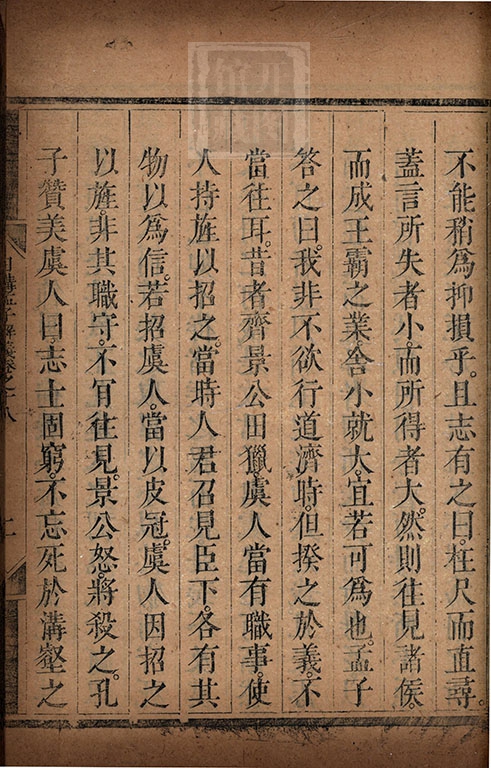 不能稍爲抑損乎。且志有之曰。枉尺而直尋。
蓋言所失者小。而所得者大。然則往見諸侯。
而成王霸之業。舍小就大。宜若可爲也。孟子
答之曰。我非不欲行道濟時。但揆之於義。不
當往耳。昔者齊景公田獵。虞人當有職事。使
人持旌以招之。當時人君召見臣下。各有其
物以爲信。若招虞人。當以皮冠。虞人因招之
以旌。非其職守。不肯往見。景公怒。將殺之。孔
子贊美虞人曰。志士固窮。不忘死於溝壑之